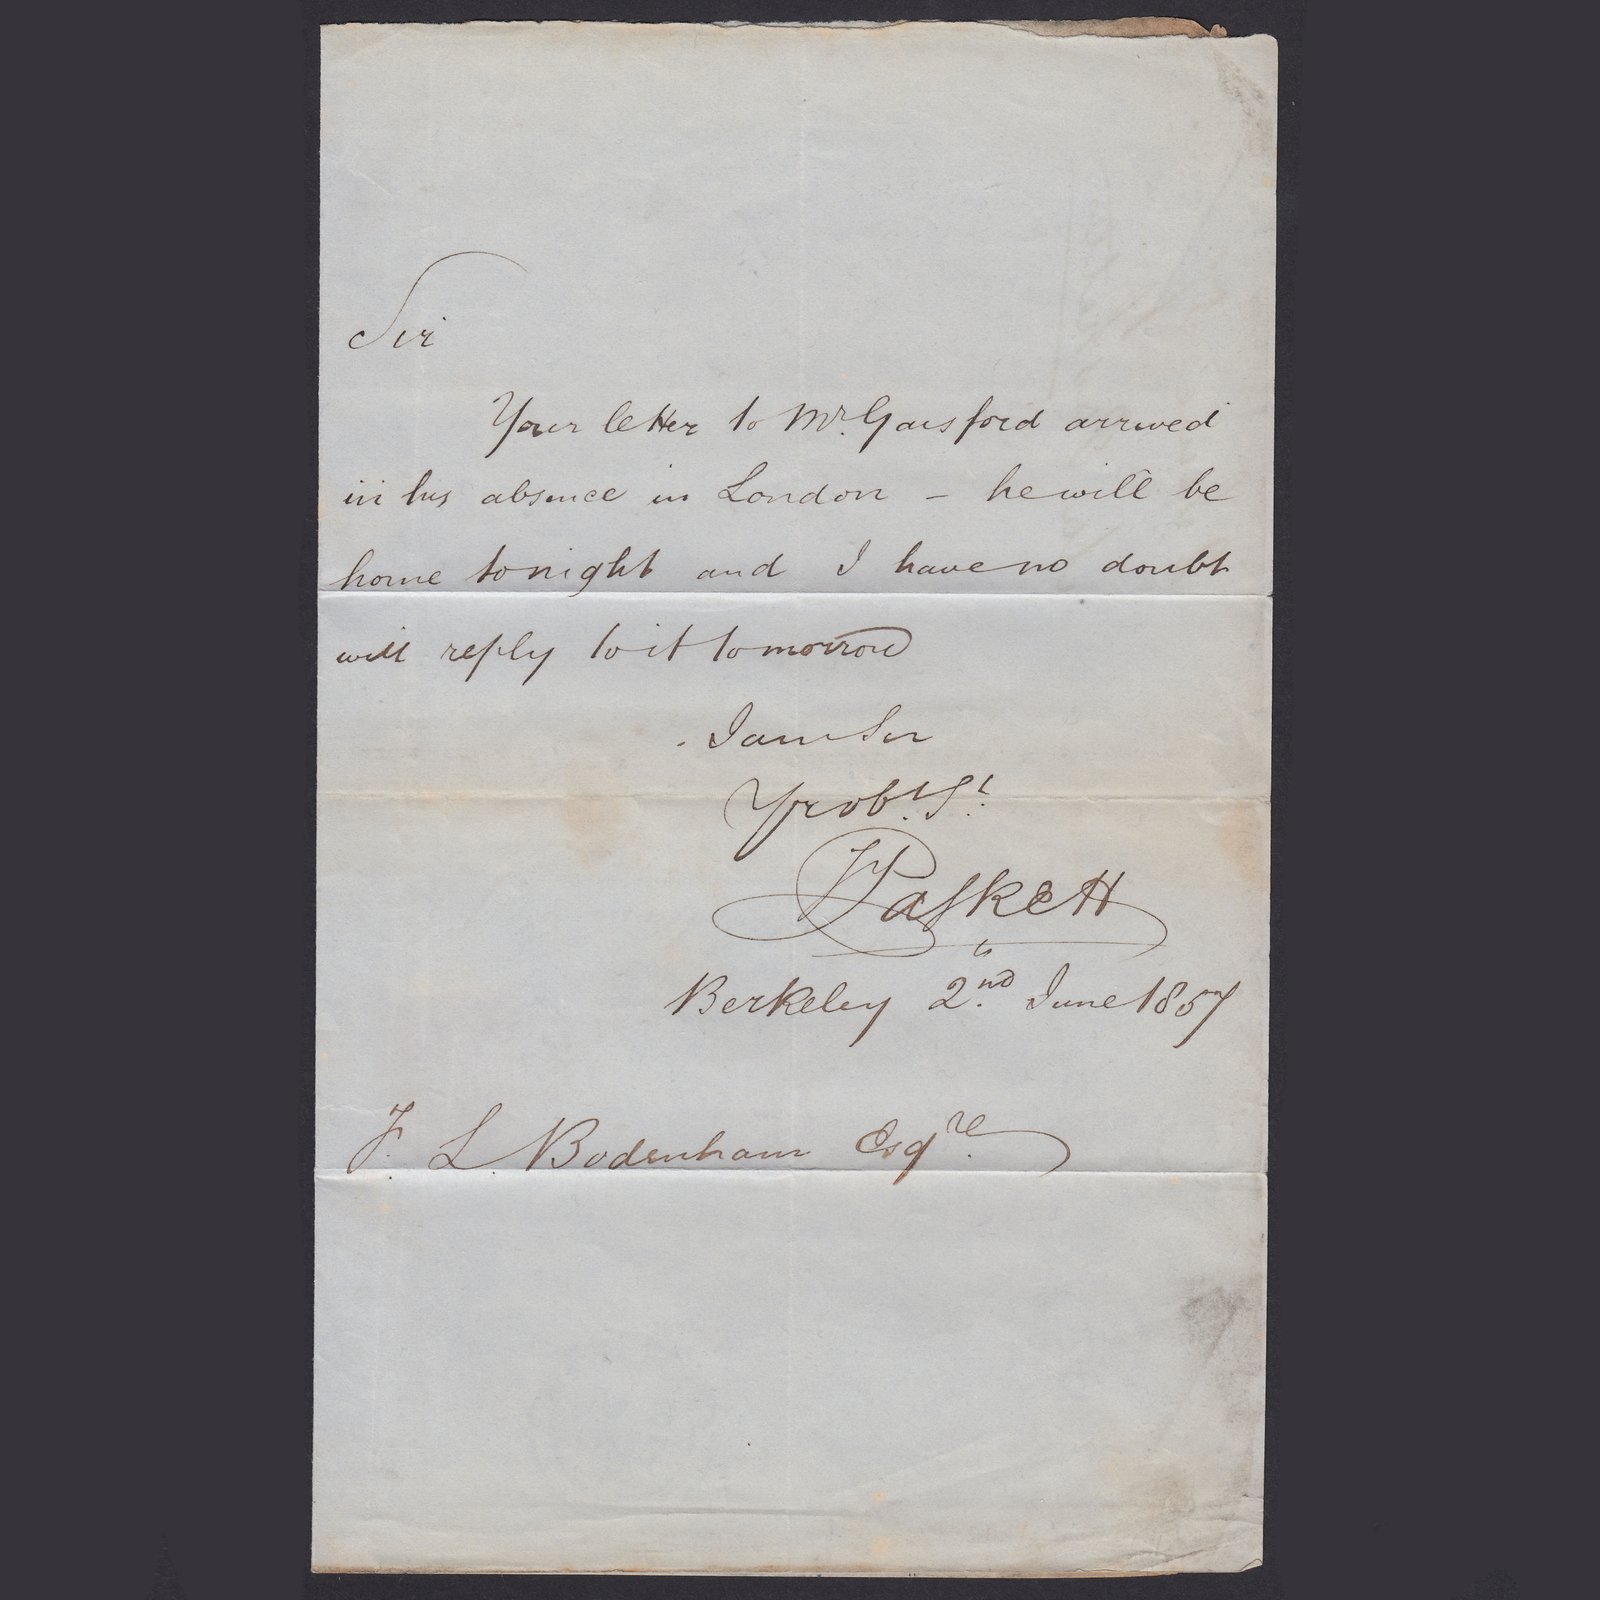 Sir
Your letter to Mr. Gaisford arrived
in his absence in London – he will be
home tonight and I have no doubt
will reply to it tomorrow
I am Sir
Yr obt. St.
Paskett
Berkeley 2nd. June 1857
F. L. Bodenham Esqre.